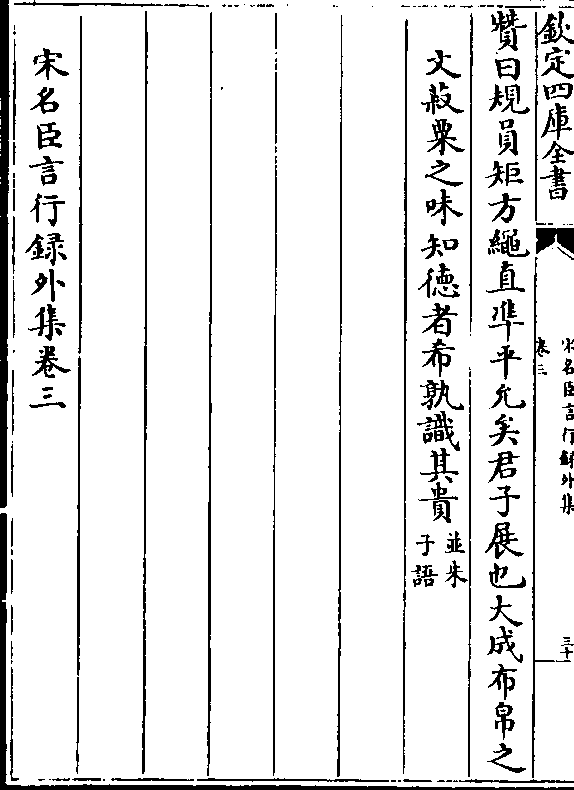 欽定四庫全書
宋名臣言行録外集
卷三
三十
贊曰規員矩方繩直準平允矣君子展也大成布帛之
文菽粟之味知德者希孰識其貴並朱子語
宋名臣言行録外集卷三